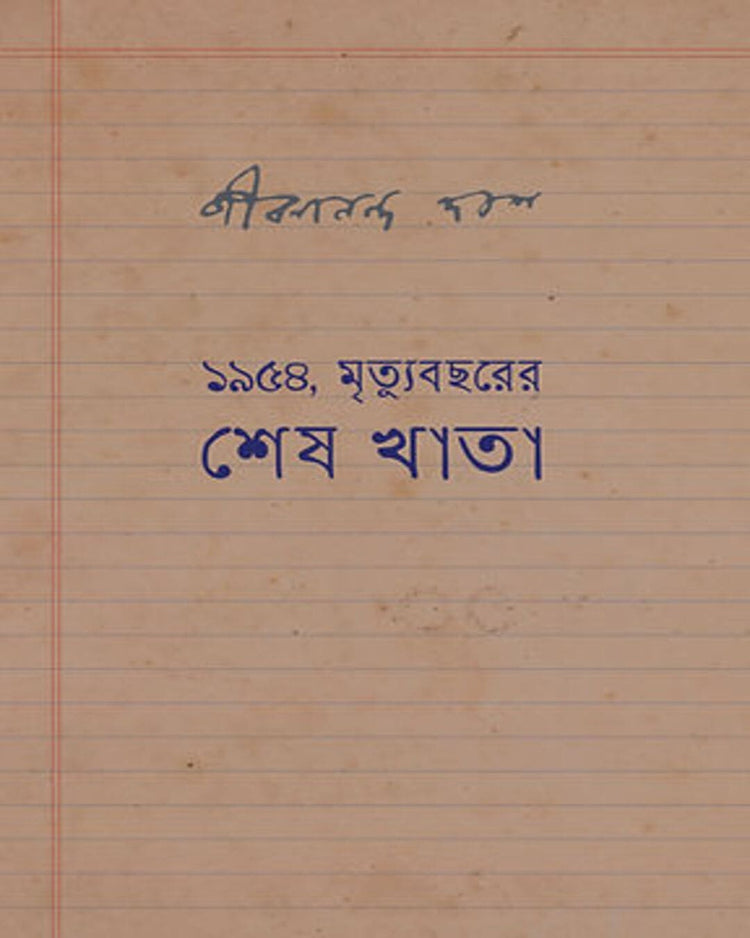 জীবনানন্দ দাশ
১৯৫৪, মৃত্যুবছরের
শেষ খাতা